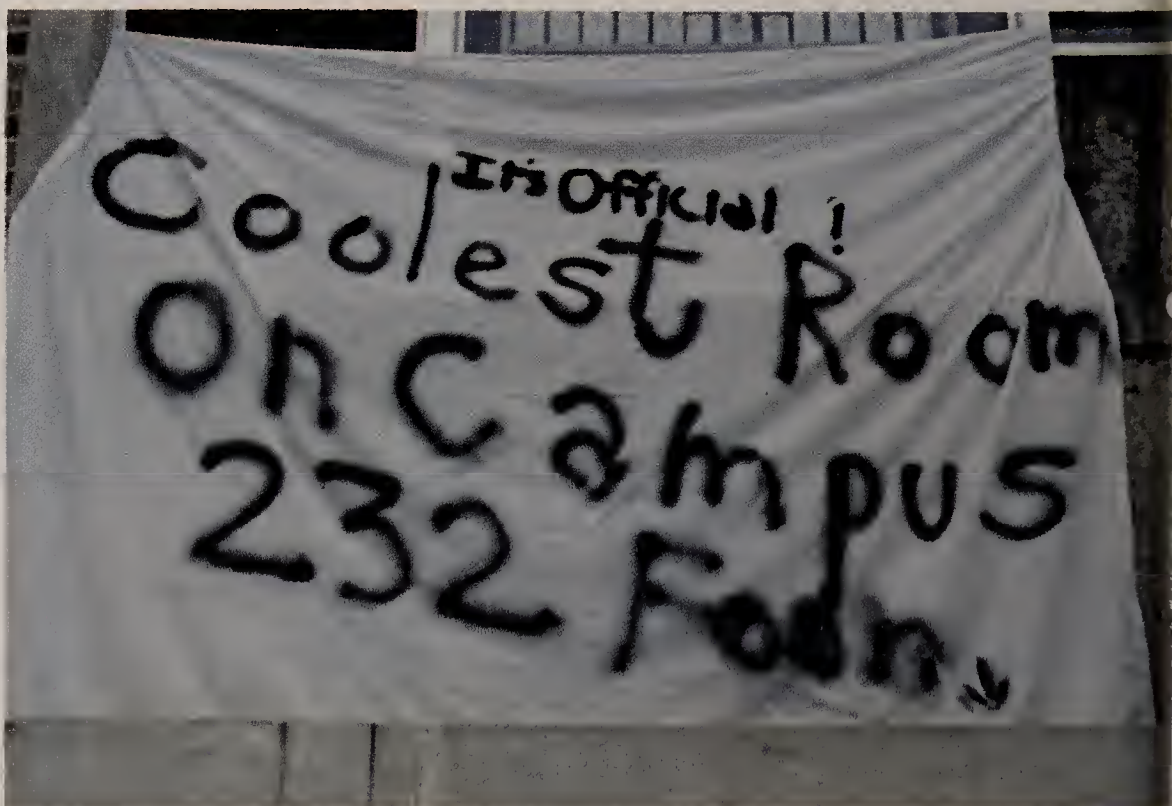 It's Official !
Coolest Room
On Campus
232 Fodn